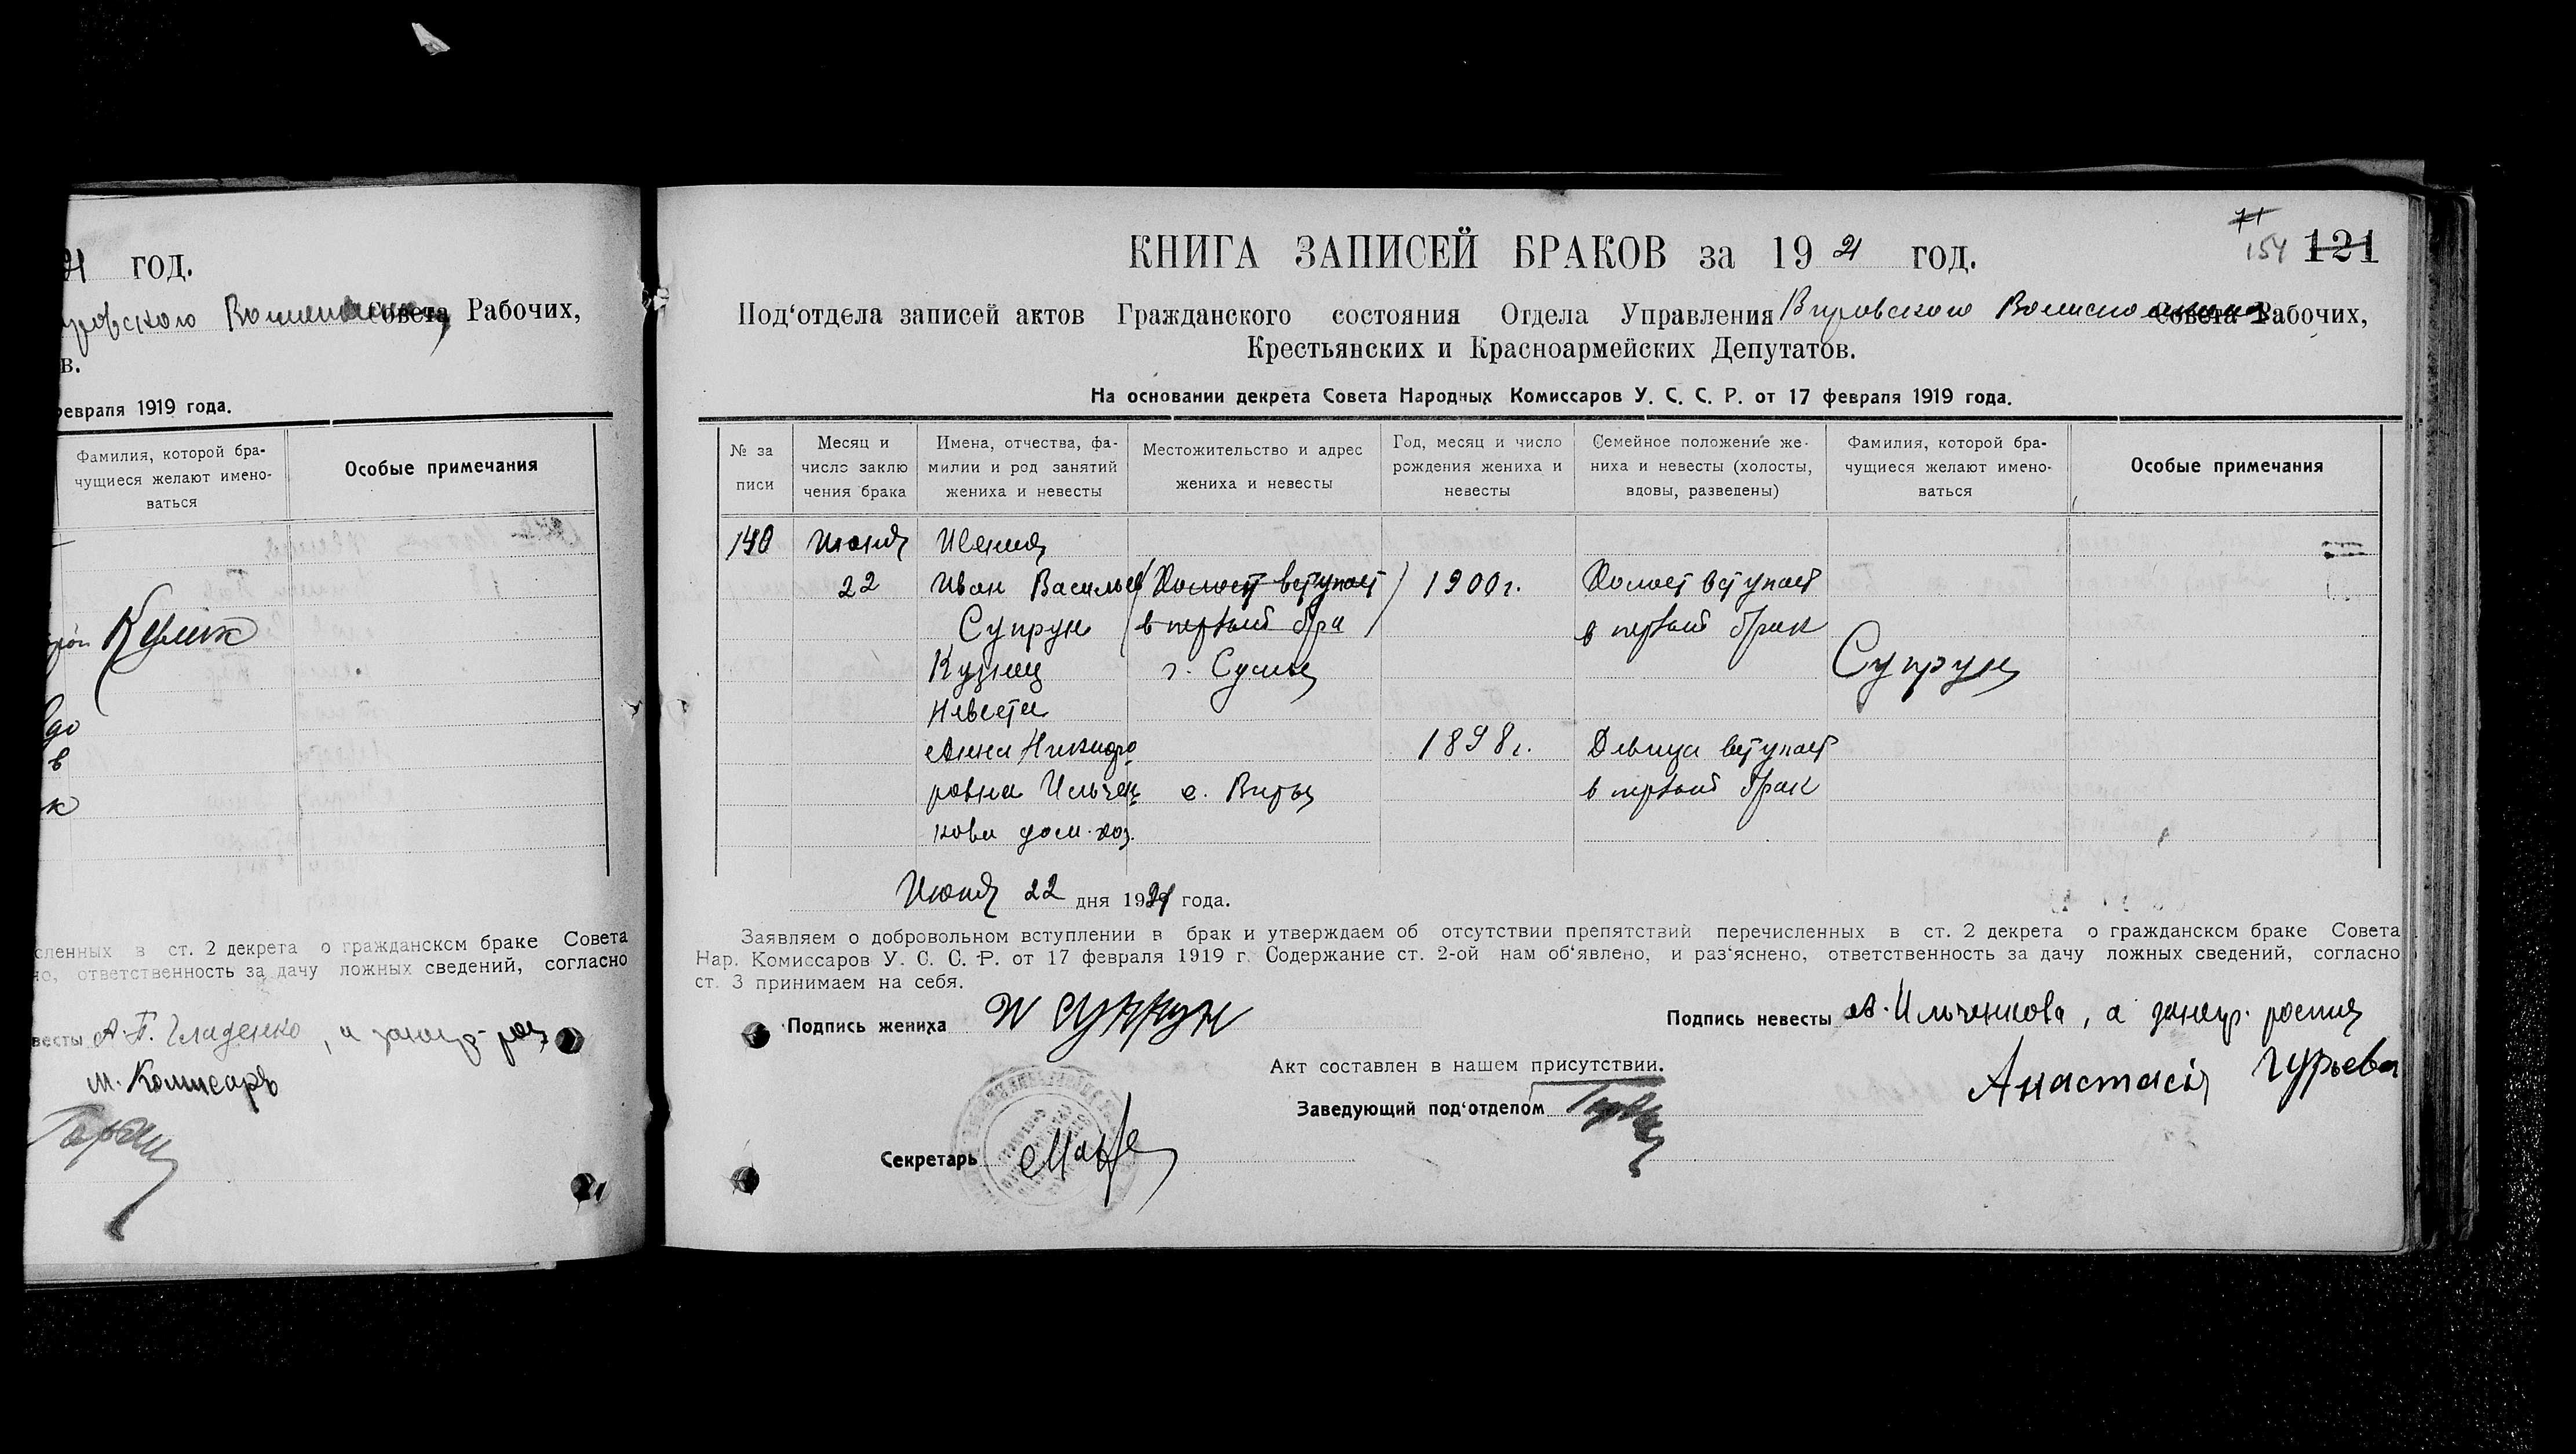 21 год.
Совета Рабочих,
в.
февраля 1919 года.
Фамилия, которой бра-
чущиеся желают имено-
ваться
Особые примечания
Кулик
в
к
сленных в ст. 2 декрета о гражданском браке Совета
но, ответственность за дачу ложных сведений, согласно
весты А. П. Гладенко, а
м. Комисаръ
71
154 121
КНИГА ЗАПИСЕЙ БРАКОВ за 1921 год.
Под‘отдела записей актов Гражданского состояния Отдела Управления Вировского Совета Рабочих,
Крестьянских и Красноармейских Депутатов.
На основании декрета Совета Народных Комиссаров У. С. С. Р. от 17 февраля 1919 года.
№ за
писи
Месяц и
число заклю
чения брака
Имена, отчества, фа-
милии и род занятий
жениха и невесты
Местожительство и адрес
жениха и невесты
Год, месяц и число
рождения жениха и
невесты
Семейное положение же-
ниха и невесты (холосты,
вдовы, разведены)
Фамилия, которой бра-
чущиеся желают имено-
ваться
Особые примечания
Июня Жених
22 Иван Васильев (Холост вступает) 1900 г. Холост вступает
Супрун (в первый бра) в первый брак
Кузнец г. Сумы Супрун
Невеста
Анна Никифо 1898 г. Девица вступает
ровна Ильчен с. Виры в первый брак
кова дом. хоз.
Июня 22 дня 1921 года.
Заявляем о добровольном вступлении в брак и утверждаем об отсутствии препятствий перечисленных в ст. 2 декрета о гражданском браке Совета
Нар. Комиссаров У. С. С. Р. от 17 февраля 1919 г. Содержание ст. 2-ой нам об‘явлено, и раз‘яснено, ответственность за дачу ложных сведений, согласно
ст. 3 принимаем на себя.
Подпись жениха И Супрун
Подпись невесты А. Ильченкова, а
Анастасія Гурьева
Акт составлен в нашем присутствии.
Заведующий под‘отделом
Секретарь